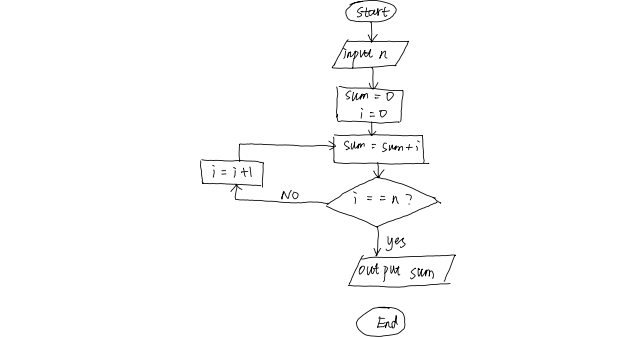 start
input n
sum = 0
i = 0
sum = sum+i
i = i+1
NO
i == n ?
yes
output sum
End